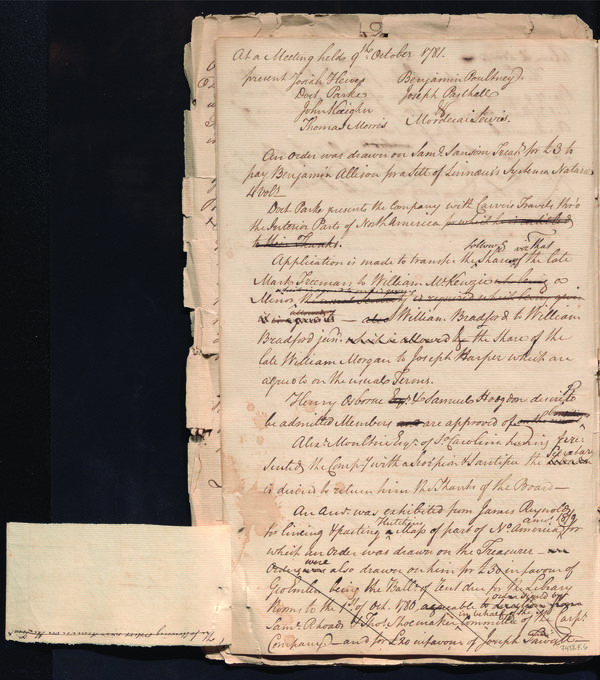 At a Meeting held 9th October 1781.
present Josiah Hewes Benjamin Poultney
Doct. Parke Joseph Paschall
John Kaighn &
Thomas Morris Mordecai Lewis.
An Order was drawn on Saml. Sansom Treasr. for £3 to
pay Benjamin Allison for a Sett of Linnaeus's Systema Naturae
4 Vols.
Doct. Parke presents the Company with Carver's Travels thro
the Interior Parts of North America for which he is entitled
to their Thanks.
following viz That
Application is made to transfer the Share of the late
Mark Freeman to William McKenzie who being a
Minor
allowed of
William Bradford to William
Bradford junr. which is allowed of the Share of the
late William Morgan to Joseph Harper which are
agreed to on the usual Terms.
Henry Osborne Esqr. & Samuel Hodgdon desire to
be admitted Members and are approved of
Alexr. Moultrie Esqr. of So. Carolina having pre-
Secretary
sented the Compy. with a Scorpion & Santifee the
is desired to return him the Thanks of the Board—
An Acct. was exhibited from James Reynolds
Hutchins amog.
for lining & pasting a Map of part of No. America for
which an Order was drawn on the Treasurer—an
were
Order was also drawn on him for £50 in favour of
Geo Emlen being the Ballc. of Rent due for the Library
Room to the 1st. of Oct. 1780 agreeable to
in behalf of the
Saml. Rhoads & Thos. Shoemaker Committee of the Carpr.
Company—and for £20 in favour of Joseph Fawcett
7432.F.6